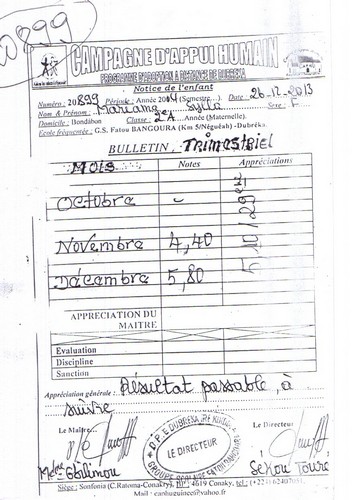 20899
CAMPAGNE D'APPUI HUMAIN
PROGRAMME D'ADOPTION A DISTANCE DE DUBREKA
Notice de l'enfant
Numéro: 20899 Période: Année 2014 (Semestre...). Date 26-12-2013
Nom & Prénom: Mariama Sylla Sexe: F
Domicile: Bondabon Classe: 2eA Année (Maternelle).
Ecole fréquentée: G.S. Fatou BANGOURA (Km 5/Néguéah) -Dubréka
BULLETIN, Trimestriel
Mois Notes Appréciations
Octobre -
Novembre 4,40
Décembre 5,80
5/10/29ème
APPRECIATION DU MAITRE
Evaluation
Discipline
Sanction
Appréciation générale: Résultat passable, à
suivre
Le Maître... Le Directeur
D.P.E. DUBREKA
LE DIRECTEUR
GROUPE SCOLAIRE FATOU BANGOURA
Sékou Touré
Siège: Sonfonia (C.Ratoma-Conakry), BP: 4619 Conakry. Tel.: (+221) 62407051.